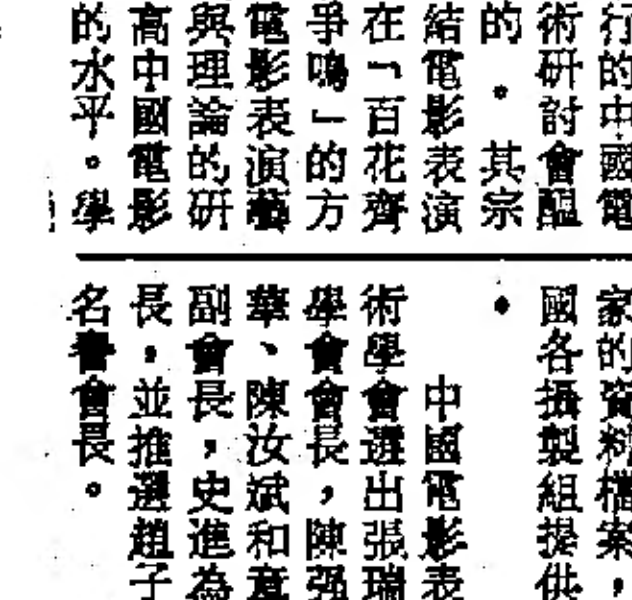 行的中國電
術研討會醞
的。其宗
結電影表演
在「百花齊
爭鳴」的方
電影表演藝
與理論的研
高中國電影
的水平。學
家的資料檔案，
國各攝製組提供
。
中國電影表
術學會選出張瑞
學會會長，陳强
華、陳汝斌和
副會長，史進為
長，並推選趙子
名譽會長。